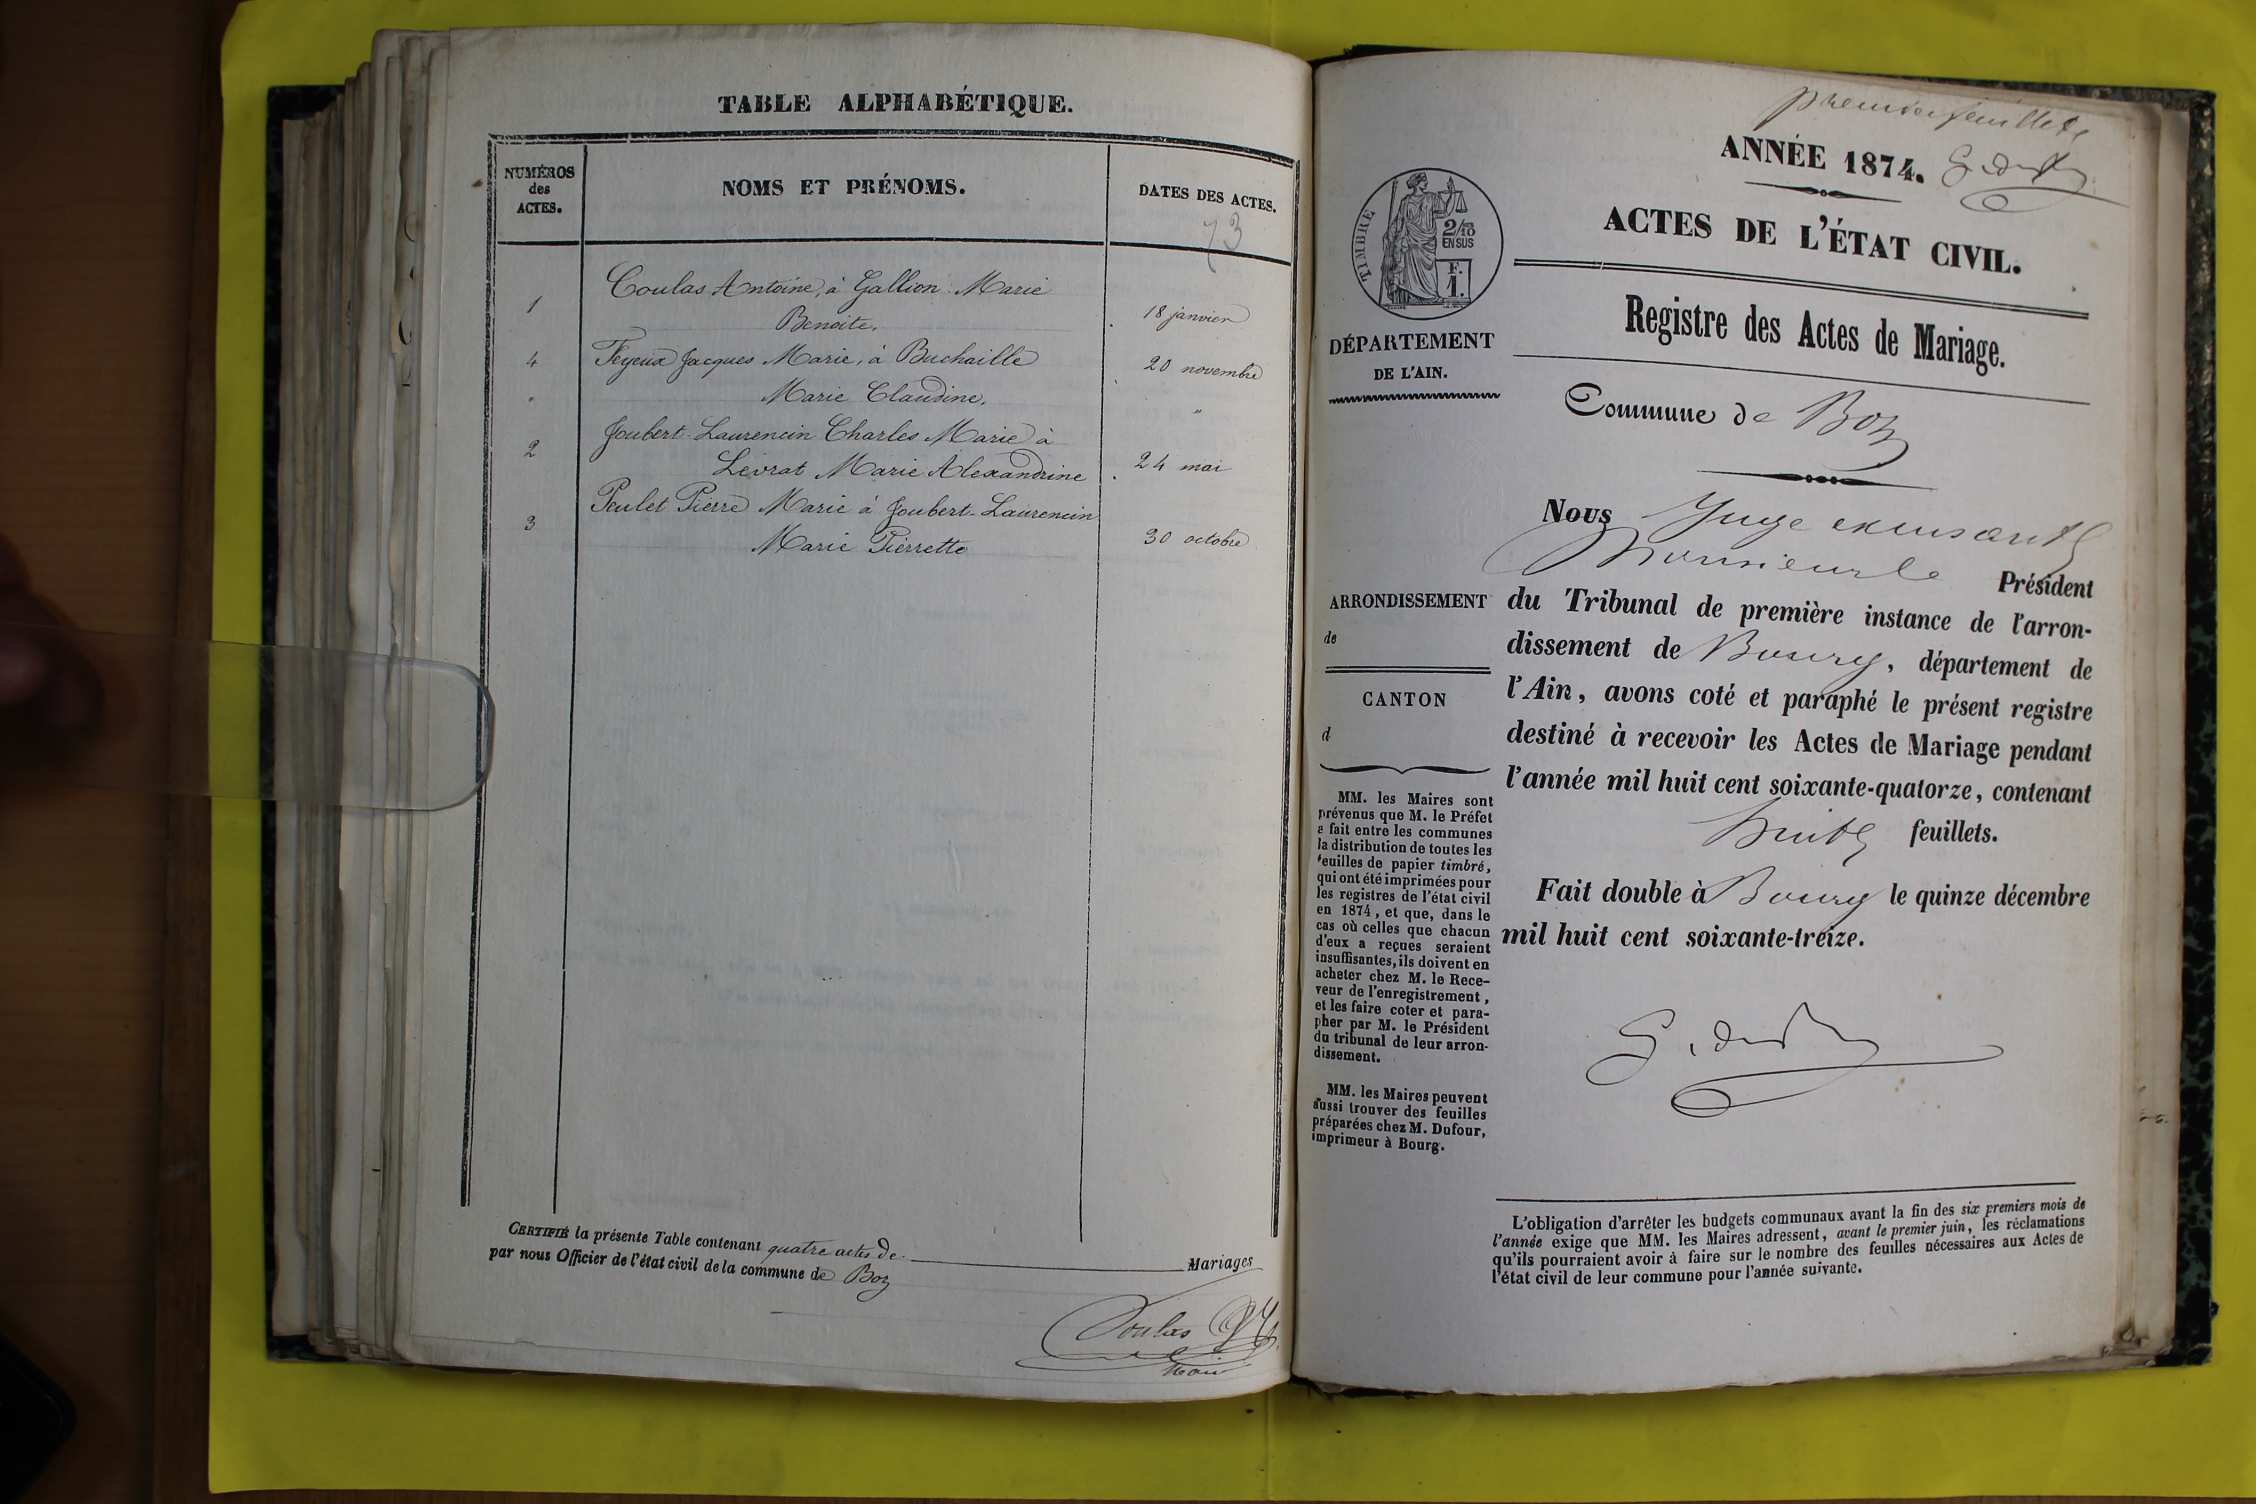 TABLE ALPHABÉTIQUE.
NUMÉROS
des
ACTES.
NOMS ET PRÉNOMS.
DATES DES ACTES.
73
1
Coulas Antoine, à Gallion Marie
Benoite.
18 janvier
4
Feyeux Jacques Marie, à Buchaille
20 novembre
Marie Claudine.
"
2
Joubert-Laurencin Charles Marie à
Levrat Marie Alexandrine
24 mai
3
Peulet Pierre Marie à Joubert-Laurencin
Marie Pierrette
30 octobre
CERTIFIÉ la présente Table contenant quatre actes de Mariages
par nous Officier de l'état civil de la commune de Boz
Coulas
Maire
premier feuillet
ANNÉE 1874.
ACTES DE L'ÉTAT CIVIL.
TIMBRE
2/10
EN SUS
F.
1.
DÉPARTEMENT
DE L'AIN.
Registre des Actes de Mariage.
Commune de Boz
ARRONDISSEMENT
de
CANTON
d
MM. les Maires sont
prévenus que M. le Préfet
a fait entre les communes
la distribution de toutes les
feuilles de papier timbré,
qui ont été imprimées pour
les registres de l'état civil
en 1874, et que, dans le
cas où celles que chacun
d'eux a reçues seraient
insuffisantes, ils doivent en
acheter chez M. le Rece-
veur de l'enregistrement,
et les faire coter et para-
pher par M. le Président
du tribunal de leur arron-
dissement.
MM. les Maires peuvent
aussi trouver des feuilles
préparées chez M. Dufour,
imprimeur à Bourg.
Nous Juge excusant
Monsieur le Président
du Tribunal de première instance de l'arron-
dissement de Bourg, département de
l'Ain, avons coté et paraphé le présent registre
destiné à recevoir les Actes de Mariage pendant
l'année mil huit cent soixante-quatorze, contenant
huit feuillets.
Fait double à Bourg le quinze décembre
mil huit cent soixante-treize.
L'obligation d'arrêter les budgets communaux avant la fin des six premiers mois de
l'année exige que MM. les Maires adressent, avant le premier juin, les réclamations
qu'ils pourraient avoir à faire sur le nombre des feuilles nécessaires aux Actes de
l'état civil de leur commune pour l'année suivante.